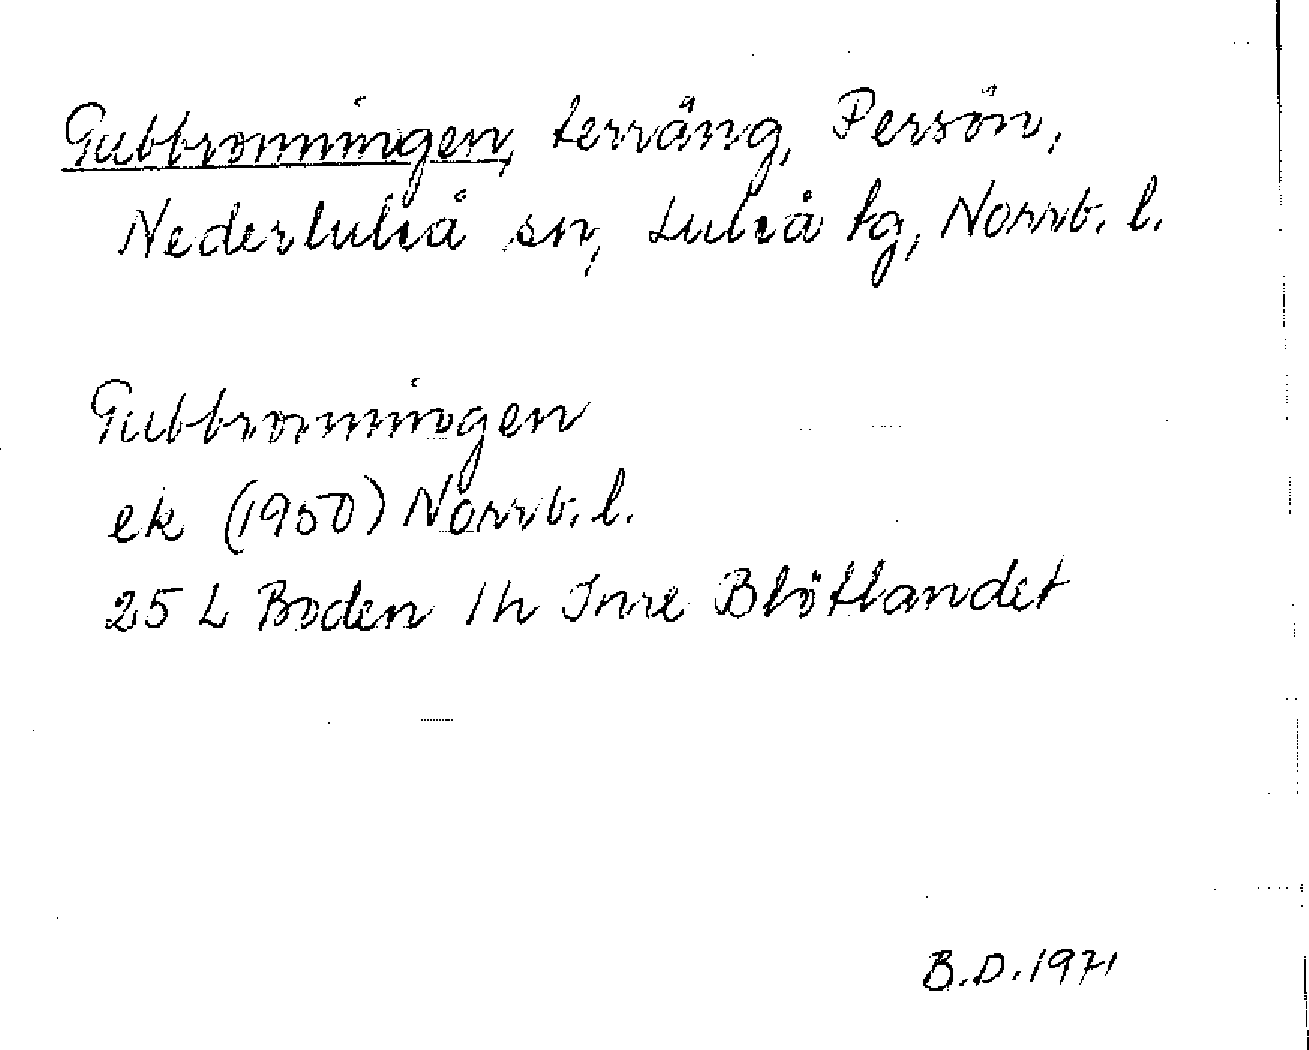 Gubbronningen, terräng, Persön,
Nederluleå sn, Luleå tg, Norrb. l.
Gubbronningen
ek (1950) Norrb. l.
25 L Boden 1h Inre Blötlandet
B.D. 1971